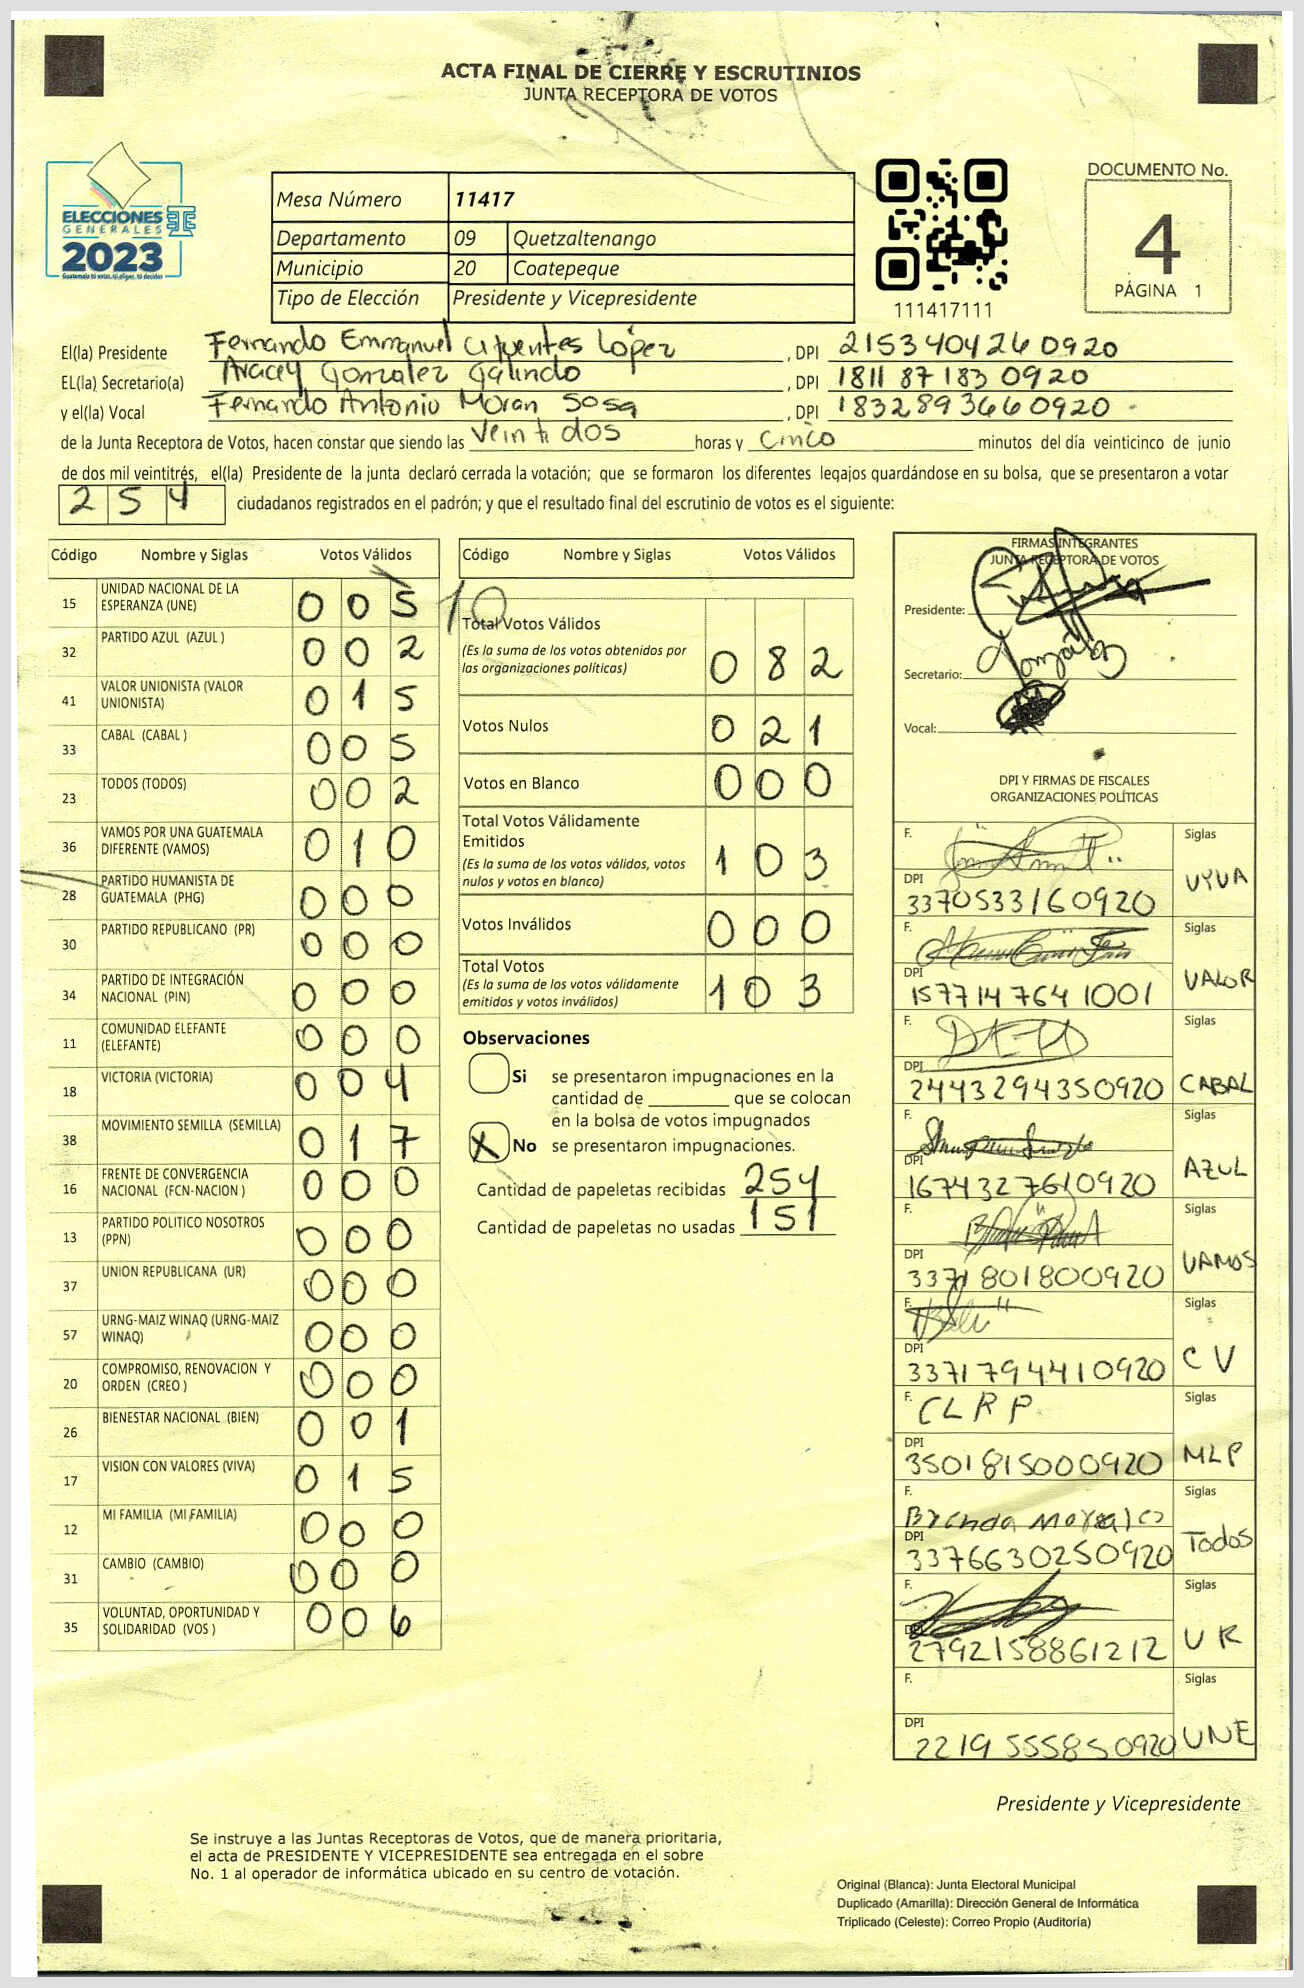 ACTA FINAL DE CIERRE Y ESCRUTINIOS
JUNTA RECEPTORA DE VOTOS
ELECCIONES
GENERALES
2023
Guatemala tú votas, tú eliges, tú decides
Mesa Número 11417
Departamento 09 Quetzaltenango
Municipio 20 Coatepeque
Tipo de Elección Presidente y Vicepresidente
111417111
DOCUMENTO No.
4
PÁGINA 1
El(la) Presidente Fernando Emmanuel Cifuentes López , DPI 2153404260920
EL(la) Secretario(a) Aracey Gonzalez Galindo , DPI 1811871830920
y el(la) Vocal Fernando Antonio Moran Sosa , DPI 1832893660920
de la Junta Receptora de Votos, hacen constar que siendo las Veinti dos horas y cinco minutos del día veinticinco de junio
de dos mil veintitrés, el(la) Presidente de la junta declaró cerrada la votación; que se formaron los diferentes legajos quardándose en su bolsa, que se presentaron a votar
254 ciudadanos registrados en el padrón; y que el resultado final del escrutinio de votos es el siguiente:
Código Nombre y Siglas Votos Válidos
15 UNIDAD NACIONAL DE LA ESPERANZA (UNE) 005 10
32 PARTIDO AZUL (AZUL ) 002
41 VALOR UNIONISTA (VALOR UNIONISTA) 015
33 CABAL (CABAL ) 005
23 TODOS (TODOS) 002
36 VAMOS POR UNA GUATEMALA DIFERENTE (VAMOS) 010
28 PARTIDO HUMANISTA DE GUATEMALA (PHG) 000
30 PARTIDO REPUBLICANO (PR) 000
34 PARTIDO DE INTEGRACIÓN NACIONAL (PIN) 000
11 COMUNIDAD ELEFANTE (ELEFANTE) 000
18 VICTORIA (VICTORIA) 004
38 MOVIMIENTO SEMILLA (SEMILLA) 017
16 FRENTE DE CONVERGENCIA NACIONAL (FCN-NACION ) 000
13 PARTIDO POLITICO NOSOTROS (PPN) 000
37 UNION REPUBLICANA (UR) 000
57 URNG-MAIZ WINAQ (URNG-MAIZ WINAQ) 000
20 COMPROMISO, RENOVACION Y ORDEN (CREO ) 000
26 BIENESTAR NACIONAL (BIEN) 001
17 VISION CON VALORES (VIVA) 015
12 MI FAMILIA (MI FAMILIA) 000
31 CAMBIO (CAMBIO) 000
35 VOLUNTAD, OPORTUNIDAD Y SOLIDARIDAD (VOS ) 006
Código Nombre y Siglas Votos Válidos
Total Votos Válidos
(Es la suma de los votos obtenidos por
las organizaciones políticas) 082
Votos Nulos 021
Votos en Blanco 000
Total Votos Válidamente
Emitidos
(Es la suma de los votos válidos, votos
nulos y votos en blanco) 103
Votos Inválidos 000
Total Votos
(Es la suma de los votos válidamente
emitidos y votos inválidos) 103
Observaciones
Si se presentaron impugnaciones en la
cantidad de ________ que se colocan
en la bolsa de votos impugnados
X No se presentaron impugnaciones.
Cantidad de papeletas recibidas 254
Cantidad de papeletas no usadas 151
FIRMAS INTEGRANTES
JUNTA RECEPTORA DE VOTOS
Presidente:
Secretario:
Vocal:
DPI Y FIRMAS DE FISCALES
ORGANIZACIONES POLÍTICAS
F. Siglas
DPI 3370533160920 VIVA
F. Siglas
DPI 1577147641001 VALOR
F. Siglas
DPI 2443294350920 CABAL
F. Siglas
DPI 1674327610920 AZUL
F. Siglas
DPI 3371801800920 VAMOS
F. Siglas
DPI 3371794410920 CV
F. CLRP Siglas
DPI 3501815000920 MLP
F. Brenda Morales Siglas
DPI 3376630250920 Todos
F. Siglas
DPI 2792158861212 UR
F. Siglas
DPI 2219555850920 UNE
Presidente y Vicepresidente
Se instruye a las Juntas Receptoras de Votos, que de manera prioritaria,
el acta de PRESIDENTE Y VICEPRESIDENTE sea entregada en el sobre
No. 1 al operador de informática ubicado en su centro de votación.
Original (Blanca): Junta Electoral Municipal
Duplicado (Amarilla): Dirección General de Informática
Triplicado (Celeste): Correo Propio (Auditoría)